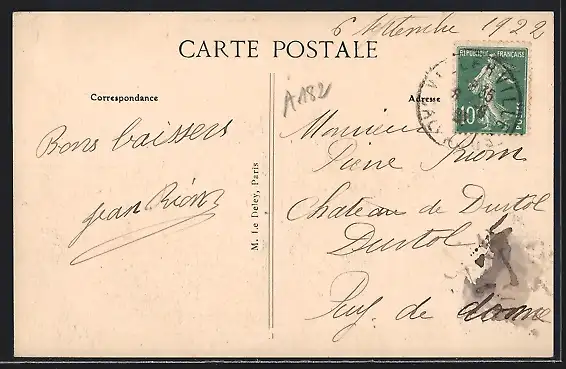 6 Septembre 1922
CARTE POSTALE
RÉPUBLIQUE FRANÇAISE
10
VILLERVILLE
CALVADOS
A182
Correspondance
Adresse
Bons baisers
Jean Riom
Monsieur
Pierre Riom
Chateau de Durtol
Durtol
Puy. de dome
M. Le Deley, Paris